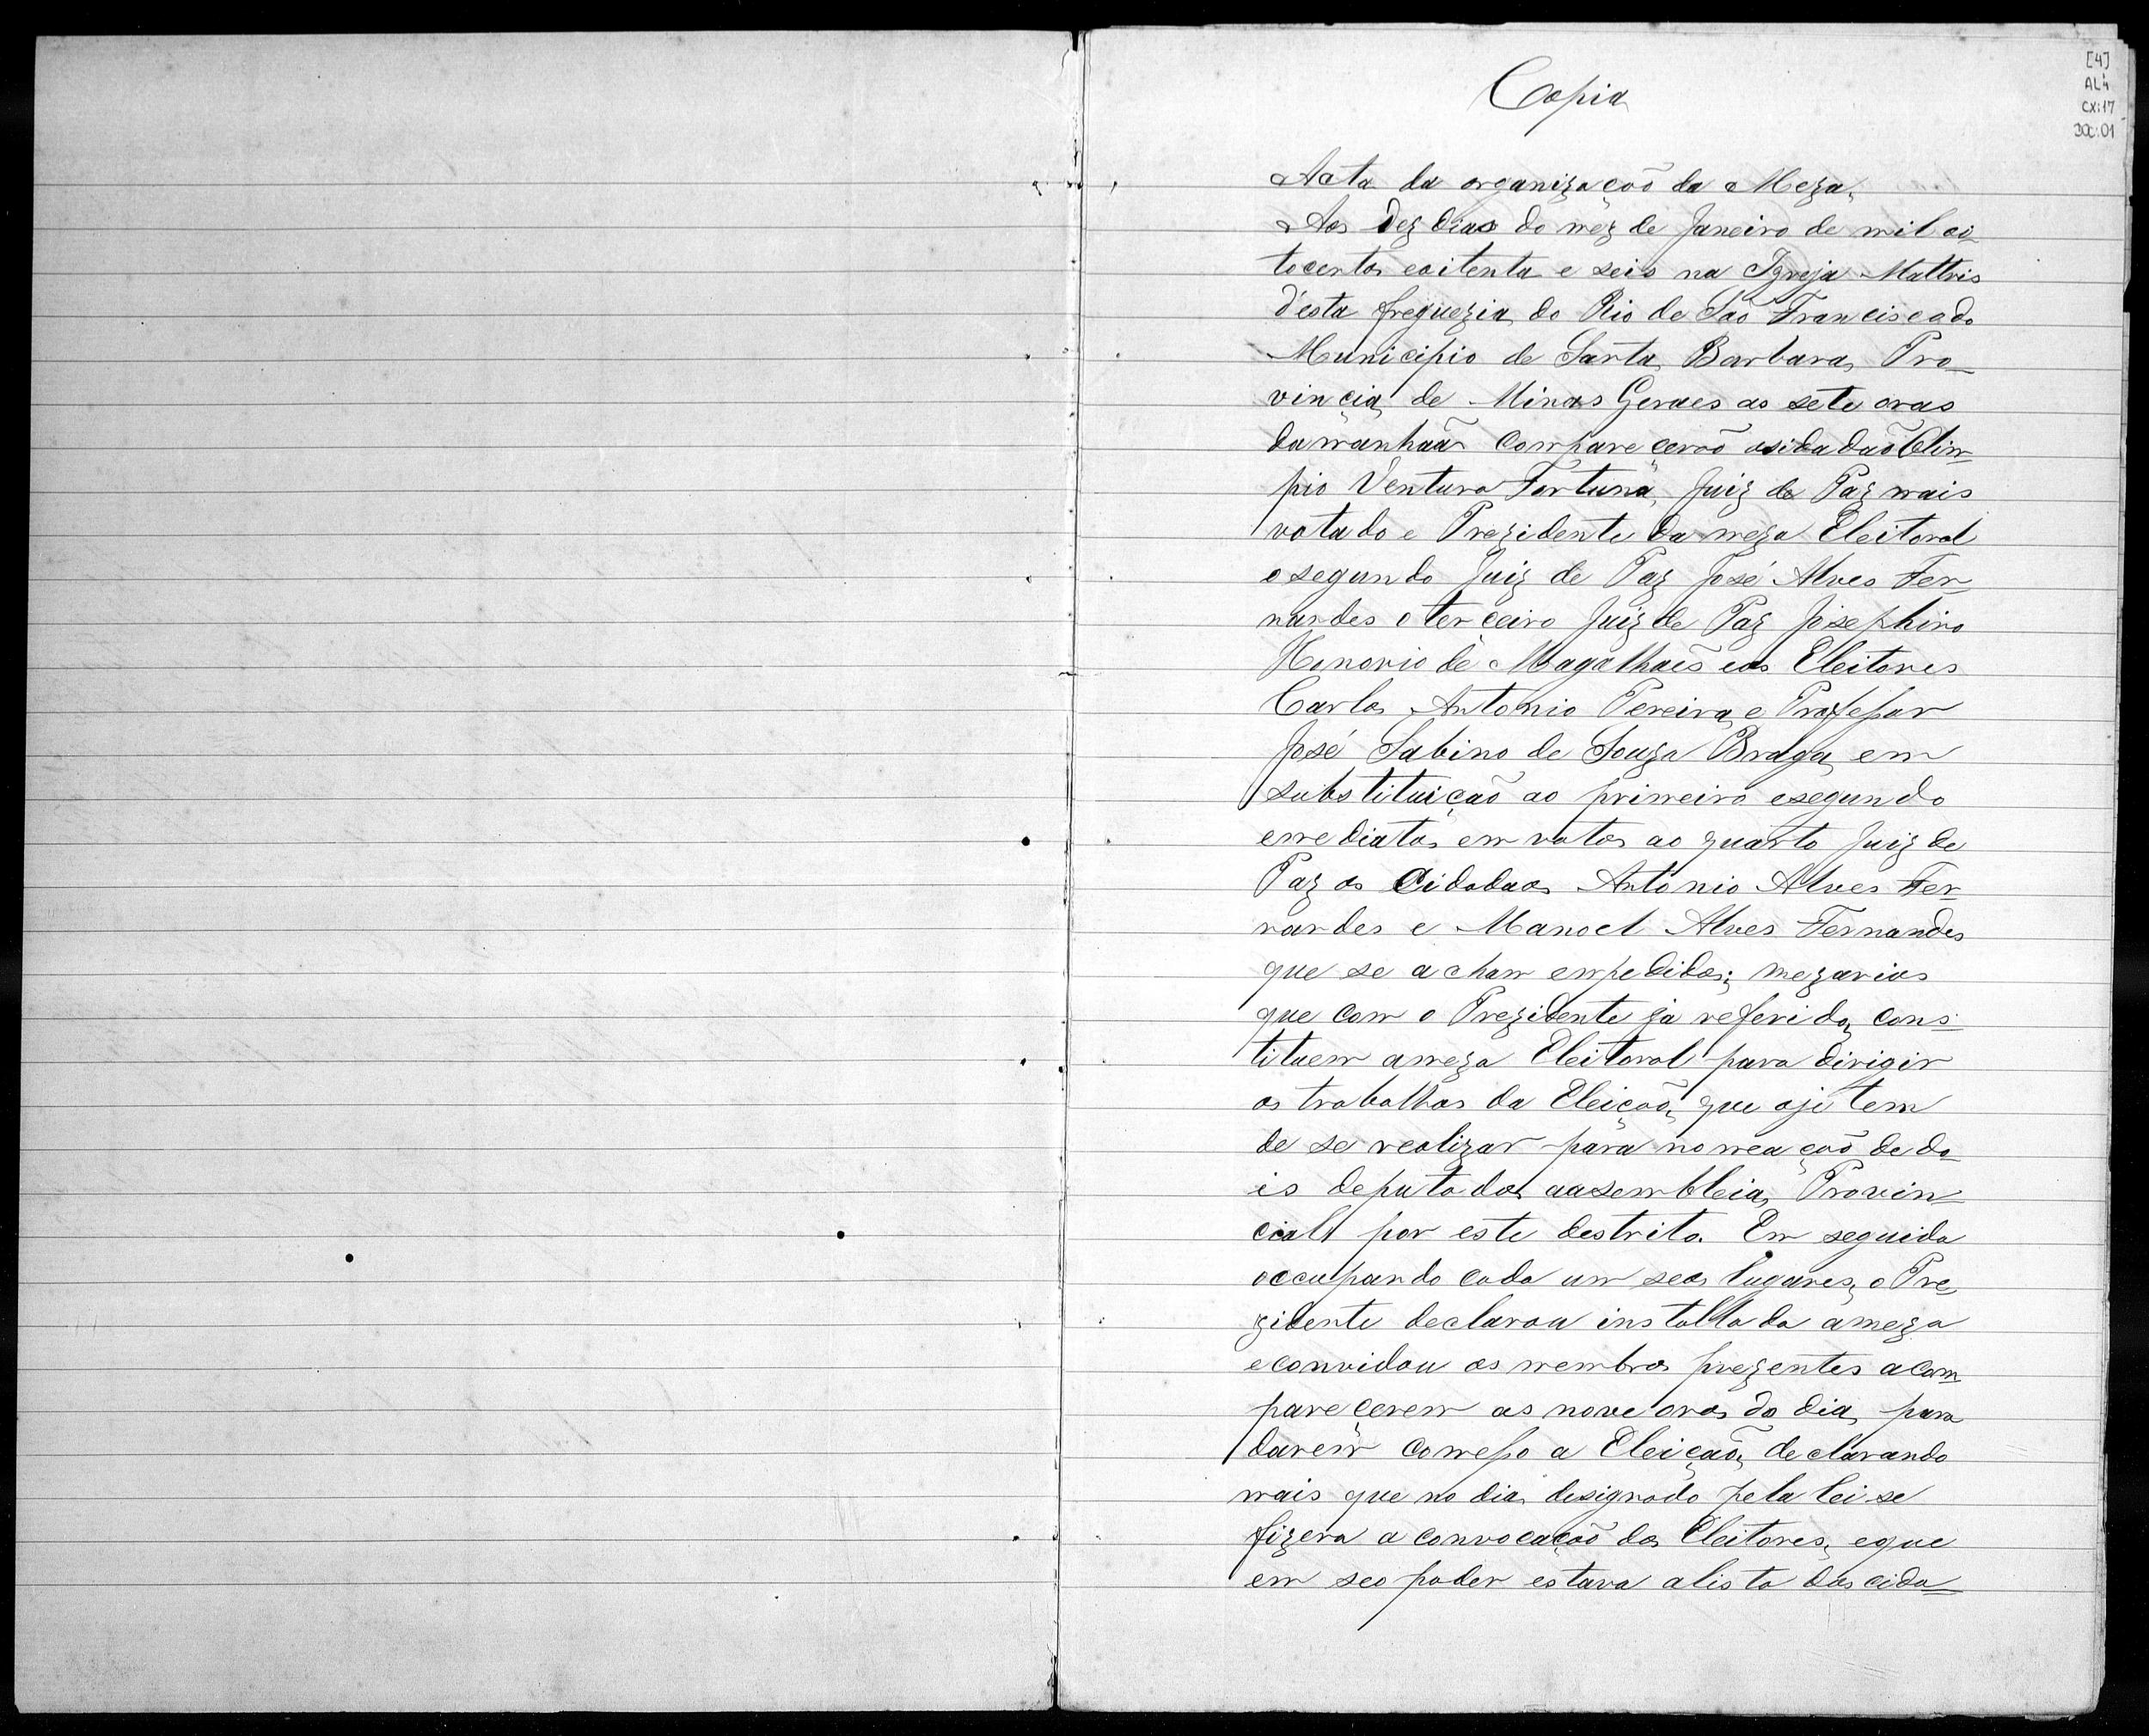 Copia
[4]
AL4
CX:17
DOC:01
Acta da organizaçaõ da Meza.
Aos Dez dias do mez de Janeiro de mil oi
tocentos eoitenta e seis na Igreja Mattris
d'esta freguezia do Rio de Saõ Francisco do
Municipio de Santa Barbara, Pro
vincia de Minas Geraes as sete oras
da manhaã compareceraõ osidadaõ Olim
pio Ventura Fortuna, Juiz de Paz mais
votado e Prezidente da meza Eleitoral
o segundo Juiz de Paz José Alves Fer
nandes o terceiro Juiz de Paz Josephino
Honorio de Magalhaẽs eos Eleitores
Carlos Antonio Pereira, e Professor
José Sabino de Souza Braga, em
substituiçaõ ao primeiro esegundo
emediatos em votos ao quarto Juiz de
Paz os Cidadaos Antonio Alves Fer
nandes e Manoel Alves Fernandes
que se acham empedidos; mezarios
que com o Prezidente ja referido, cons
tituem ameza Eleitoral para dirigir
os trabalhos da Eleiçaõ, que oje tem
de se realizar para nomeaçaõ de do
is deputados aasembleia, Provin
cial por este destrito. Em seguida
occupando cada um seos lugares, o Pre
zidente declarou installada ameza
econvidou os membros prezentes acom
parecerem as nove oras do dia, para
darem comesso a Eleiçaõ, declarando
mais que no dia designado pela lei se
fizera a convocaçaõ dos Eleitores, eque
em seo poder estava alista dos cida